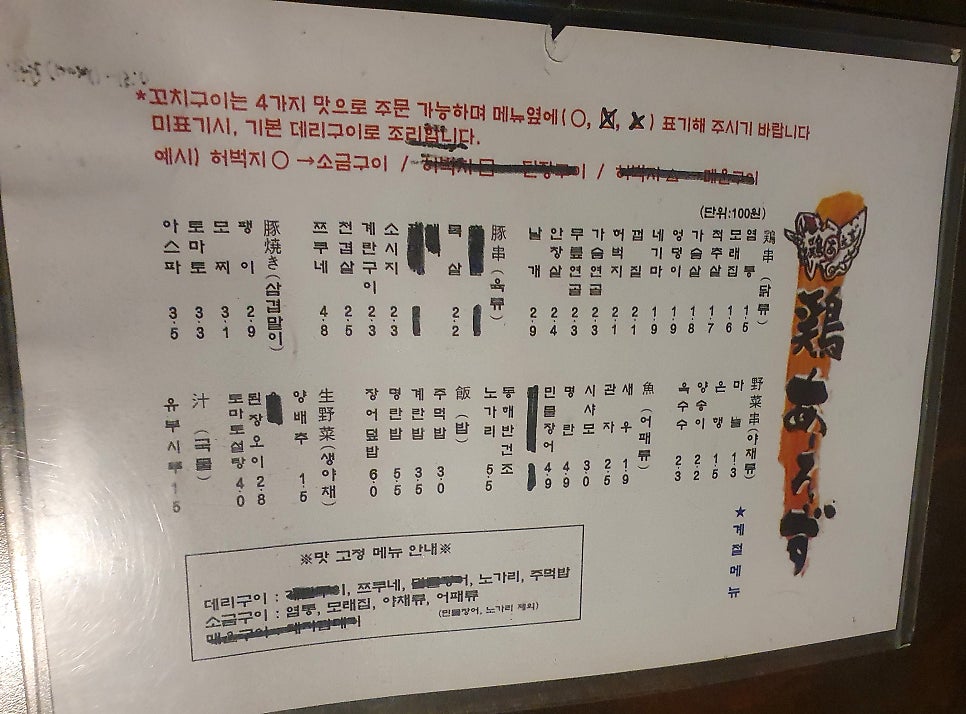 *꼬치구이는 4가지 맛으로 주문 가능하며 메뉴옆에(○, , ) 표기해 주시기 바랍니다
미표기시, 기본 데리구이로 조리합니다.
예시) 허벅지 ○ →소금구이 / 허벅지 □ 된장구이 / 허벅지 △ 매운구이
(단위:100원)
鶏串(닭류)
염통 15
모래집 16
적추살 17
가슴살 18
엉덩이 19
네기마 19
껍질 21
허벅지 21
가슴연골 23
무릎연골 23
안창살 24
날개 29
豚串(육류)
목살 22
소시지 23
계란구이 23
전겹살 25
쯔쿠네 48
豚焼き(삼겹말이)
팽이 29
모찌 31
토마토 33
아스파 35
野菜串(야채류)
마늘 13
은행 15
양송이 22
옥수수 23
魚(어패류)
새우 19
관자 25
시샤모 30
명란 49
민물장어 49
동해반건조
노가리 55
飯(밥)
주먹밥 30
계란밥 35
명란밥 55
장어덮밥 60
生野菜(생야채)
양배추 15
된장오이 28
토마토설탕 40
汁(국물)
유부시루 15
鶏 あーろず
★계절메뉴
※맛 고정 메뉴 안내※
데리구이 : 이, 쯔쿠네, 민물장어, 노가리, 주먹밥
소금구이 : 염통, 모래집, 야채류, 어패류
(민물장어, 노가리 제외)
매운구이 :